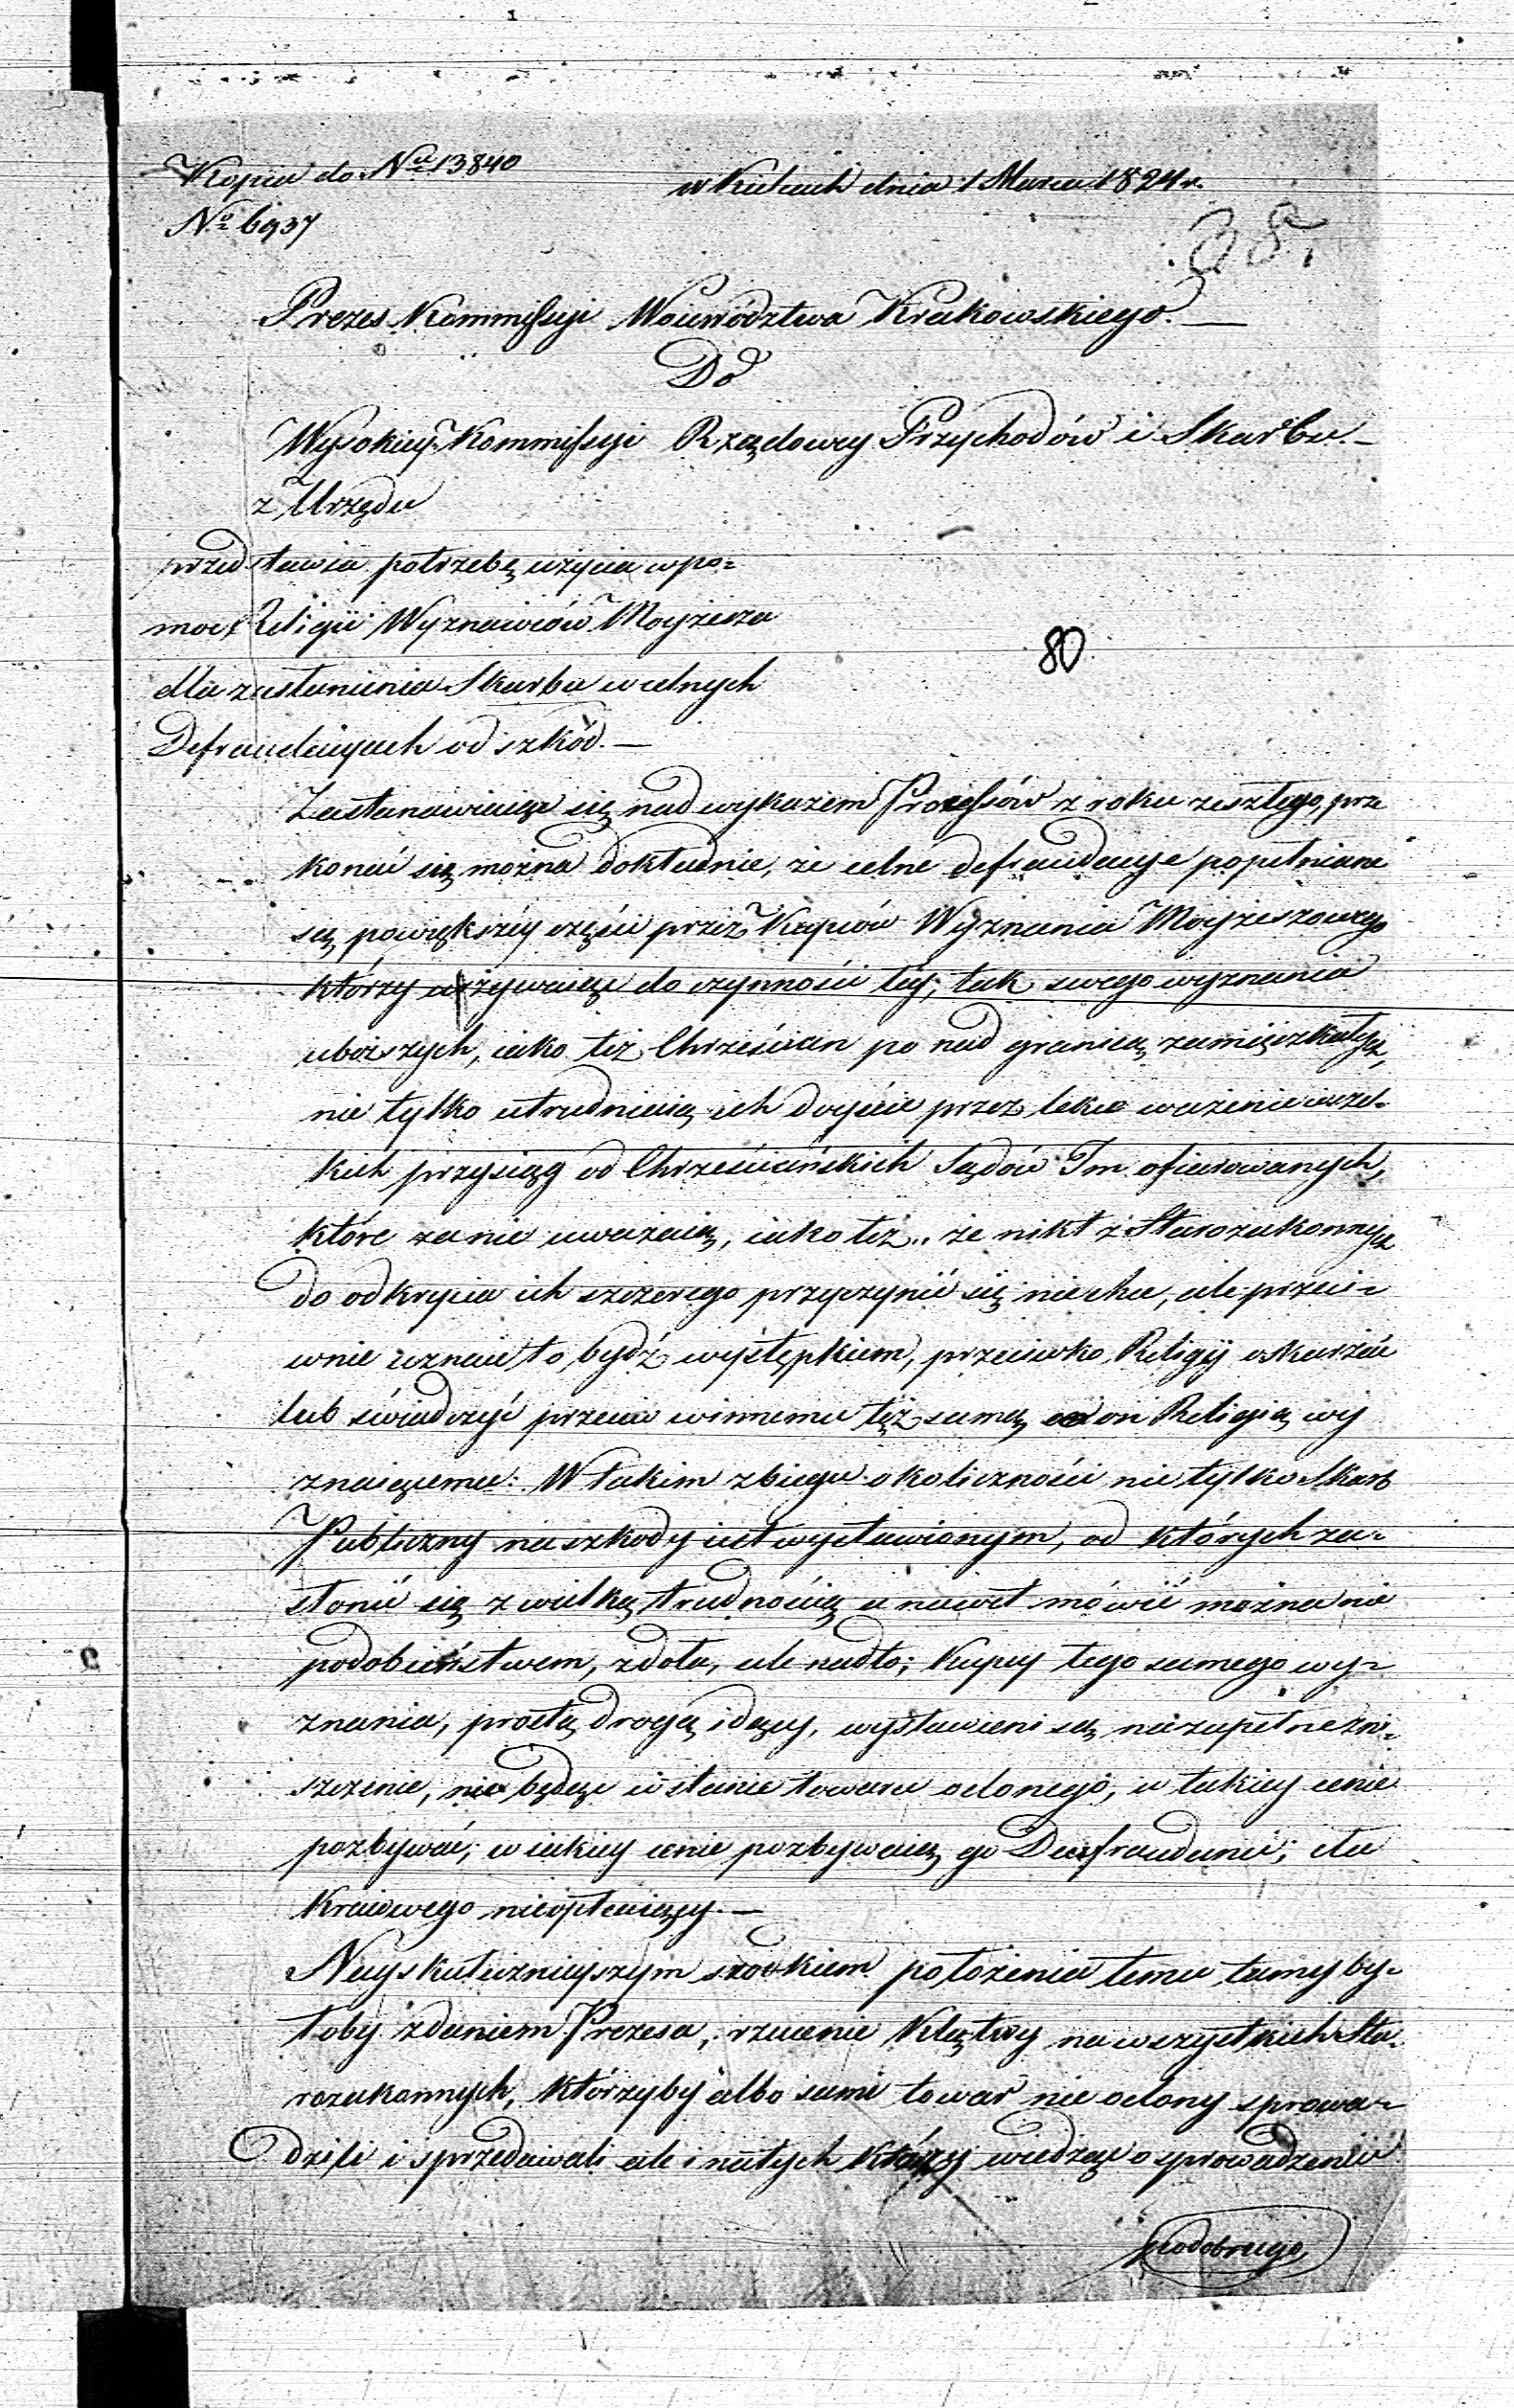 Kopia do Nu 13840
w Kielcach dnia 1 Marca 1824 r.
No 6937
38.
Prezes Kommissyi Woiewództwa Krakowskiego. —
Do
Wysokiey Kommissyi Rządowey Przychodów i Skarbu —
z Urzędu
przedstawia potrzebę użycia w po-
moc Religii Wyznawców Moyżesza
80
dla zasłonienia Skarbu w celnych
Defraudacyach od szkód. —
Zastanawiaiąc się nad wykazem Processów z roku zeszłego, prze
konać się można dokładnie, że celne defraudacye popełniane
są powiększéy części przez Kupców Wyznania Moyżeszowego
którzy używaiąc do czynności téy, tak swego wyznania
uboższych, iako też Chrześcian po nad granicą zamięszkałych,
nie tylko utrudniaią ich doyście przez lekce ważenie wszel-
kich przysiąg od Chrześciańskich Sądów Im ofiarowanych,
które za nic uważaią, iako też, że nikt z Starozakonnych
do odkrycia ich szczerego przyczynić się nie chce, ale przeci-
wnie uznaie to bydź występkiem, przeciwko Religij oskarżać
lub świadczyć przeciw winnemu tęż samą co on Religią wy
znaiącemu: W takim zbiegu okoliczności nie tylko Skarb
Publiczny na szkody iest wystawionym, od których za-
słonić się z wielką trudnością a nawet mówić można nie
podobieństwem, zdoła, ale nadto; Kupcy tego samego wy-
znania, prostą drogą idący, wystawieni są na zupełne zni-
szczenie, nie będąc w stanie towaru oclonego, w takiey cenie
pozbywać, w iakiey cenie pozbywaią go Defraudanci, cła
Kraiowego nieopłacaiący. —
Nayskutecznieyszym środkiem położenia temu tamy by-
łoby zdaniem Prezesa, rzucenie Klątwy na wszystkich Sta-
rozakonnych, którzyby albo sami towar nie oclony sprowa-
dzili i sprzedawali ale i na tych którzy wiedząc o sprowadzeniu
podobnego